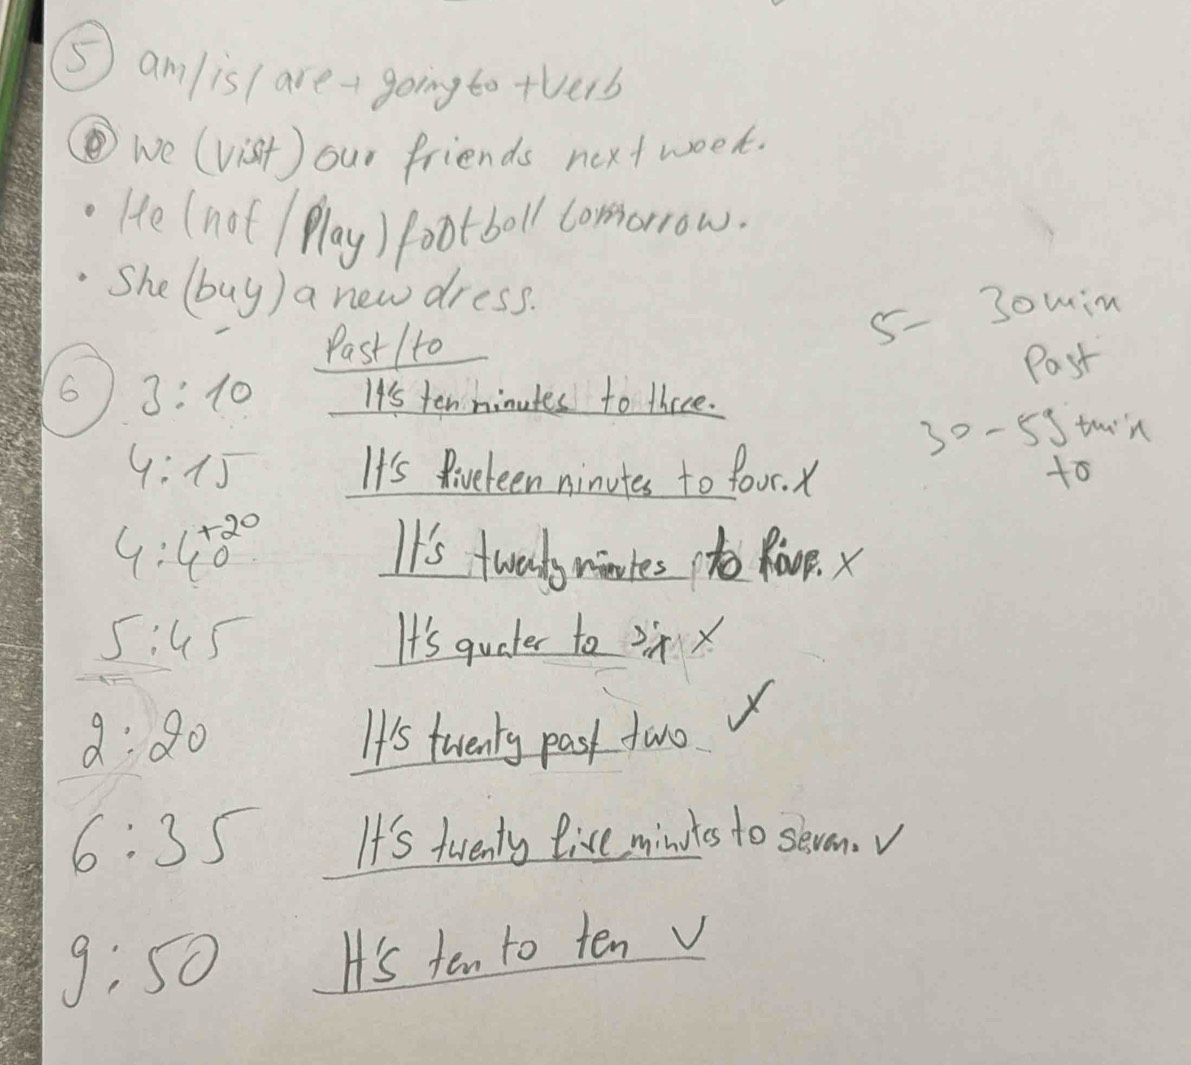 5 am/is/are + going to + verb
We (visit) our friends next week.
• He (not/play) football tomorrow.
• She (buy) a new dress.
Past/to
6 3:10 It's ten minutes to three.
4:15 It's fiveteen minutes to four. x
4:40 +20 It's twenty minutes to five. x
5:45 It's quater to six x
2:20 It's twenty past two
6:35 It's twenty five minutes to seven. ✓
9:50 It's ten to ten ✓
5- 30min
Past
30-55 min
to